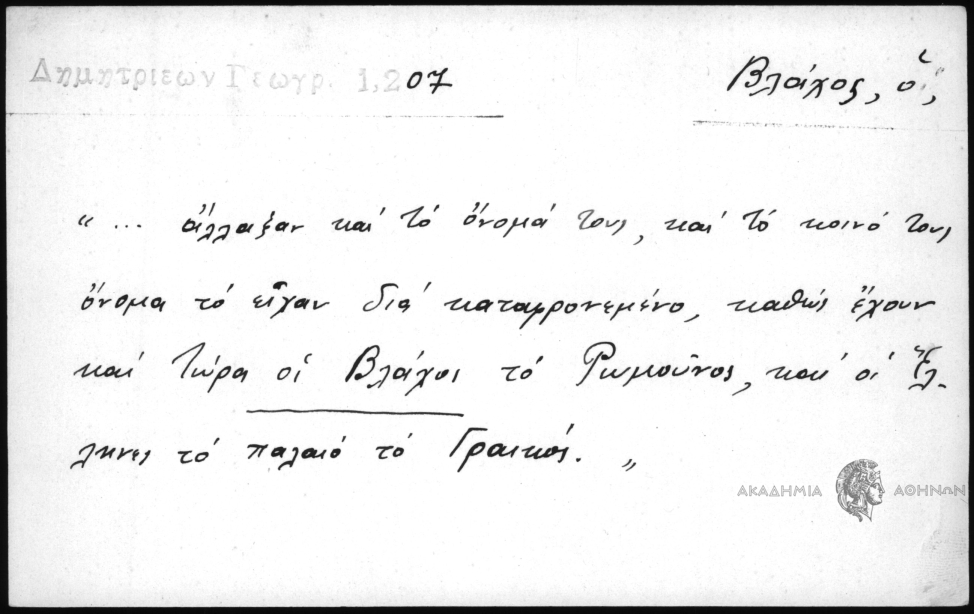 Δημητριέων Γεωγρ. 1,207
Βλάχος, ὁ,
“ ... ἄλλαξαν καί τό ὄνομά τους, καί τό κοινό τους
ὄνομα τό εἶχαν διά καταφρονεμένο, καθώς ἔχουν
καί τώρα οἱ Βλάχοι τό Ρωμοῦνος, καί οἱ Ἕλ-
ληνες τό παλαιό τό Γραικός. „
ΑΚΑΔΗΜΙΑ ΑΘΗΝΩΝ